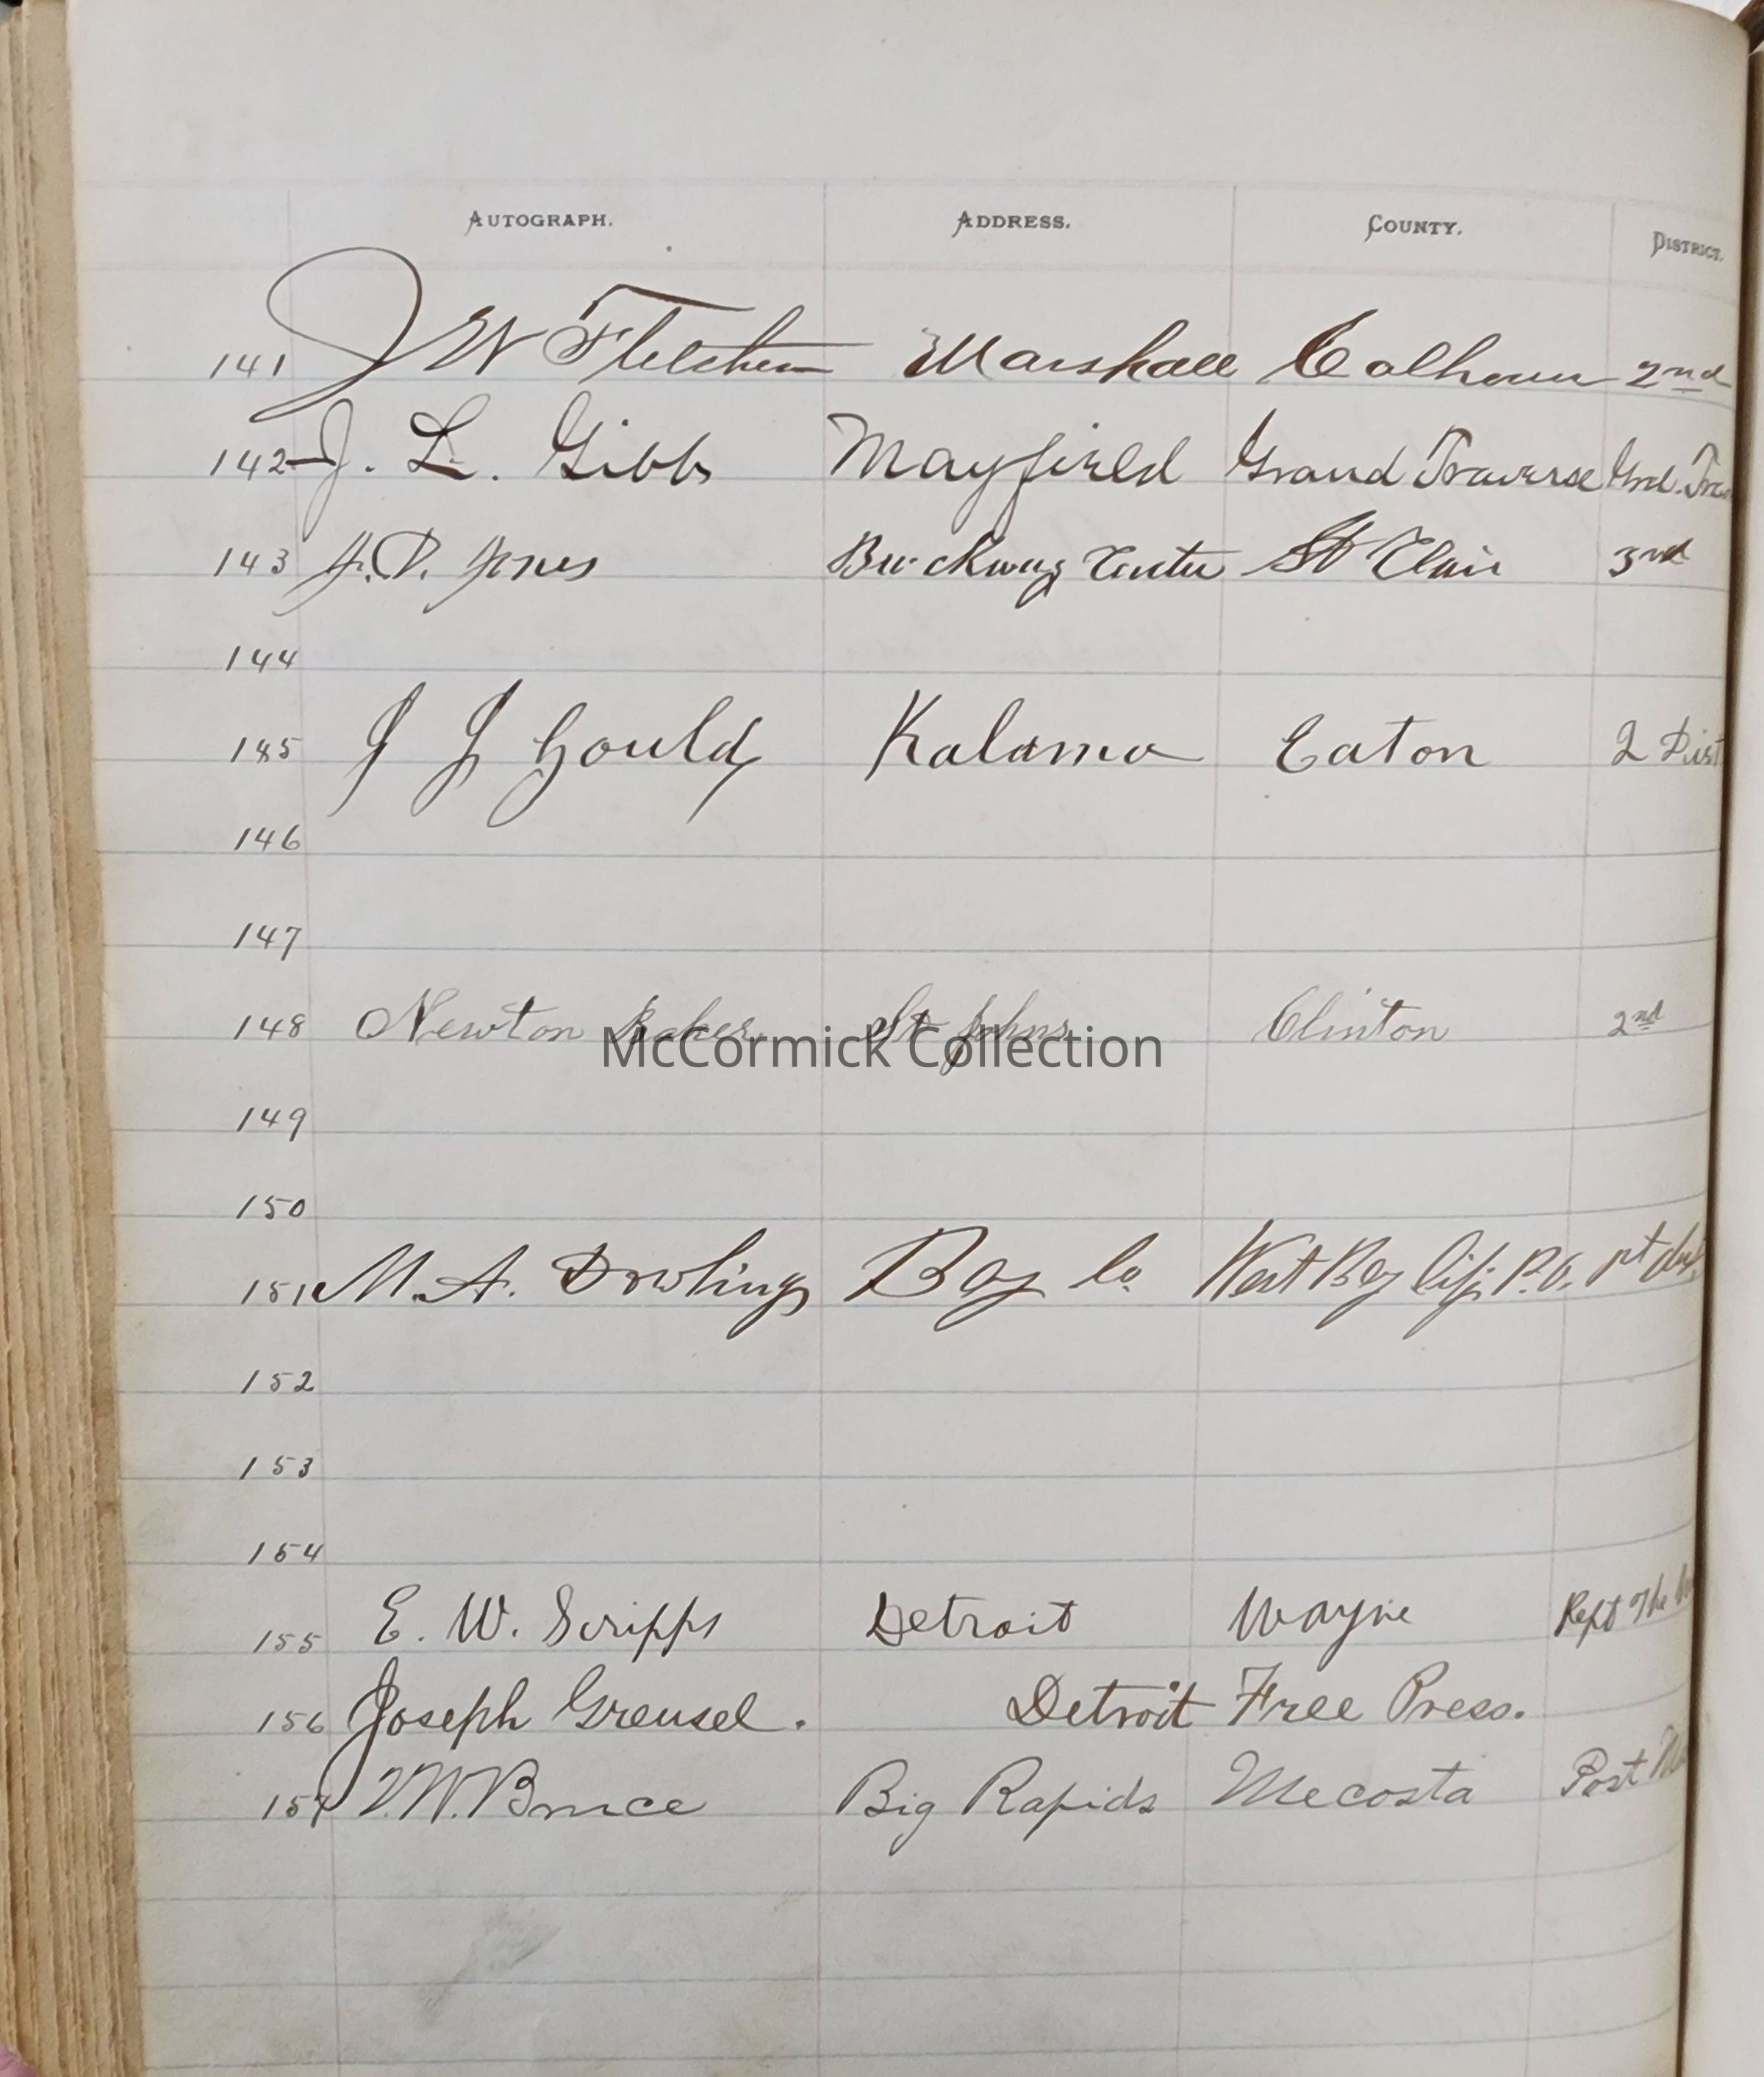 AUTOGRAPH. ADDRESS. COUNTY. DISTRICT.
141 J W Fletcher Marshall Calhoun 2nd
142 J. L. Gibbs Mayfield Grand Traverse Grd. Tra
143 J. D. Jones Brockway Center St Clair 3rd
144
145 J J Gould Kalamo Eaton 2 Dist
146
147
148 Newton Baker St Johns Clinton 2nd
McCormick Collection
149
150
151 M. A. Dowling Bay Co West Bay City P.O. 1st
152
153
154
155 E. W. Scripps Detroit Wayne Rept The
156 Joseph Greusel. Detroit Free Press.
157 V.W. Bruce Big Rapids Mecosta Post